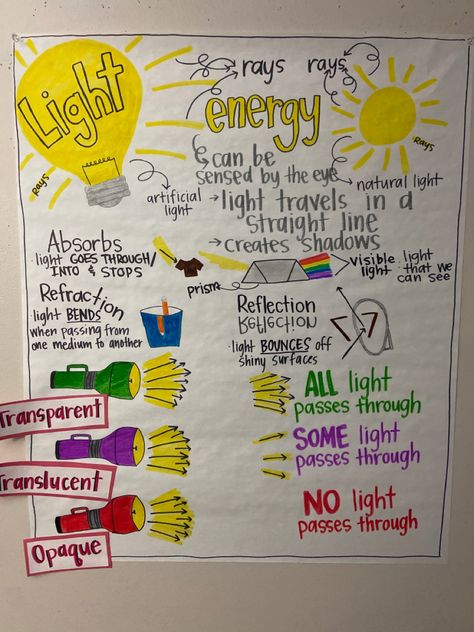 Light
rays rays
energy
rays
rays
artificial
light
can be
sensed by the eye
natural light
→light travels in a
straight line
→creates shadows
Absorbs
· light GOES THROUGH/
INTO & STOPS
prism
visible : light
light that we
can see
Refraction
· light BENDS
when passing from
one medium to another
Reflection
Reflection
· light BOUNCES off
shiny surfaces
Transparent
ALL light
passes through
Translucent
SOME light
passes through
Opaque
NO light
passes through